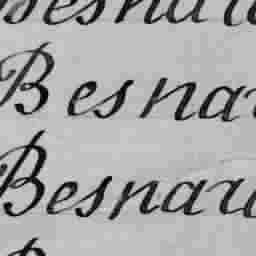 Besnar
Besnar
Besnar